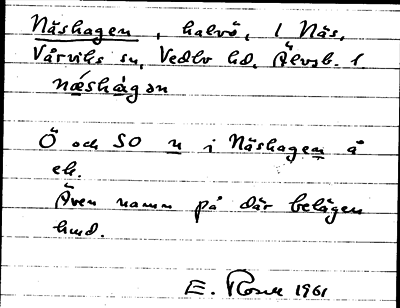 Näshagen, halvö, i Näs,
Vårviks sn, Vedbo hd, Älvsb. l.
næ̀shàgən
Ö och SO n i Näshagen å
ek.
Även namn på där belägen
hmd.
E. Rosell 1961